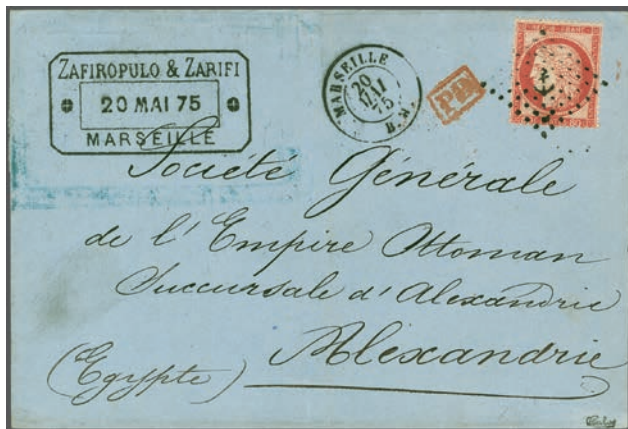 ZAFIROPULO & ZARIFI
20 MAI 75
MARSEILLE
MARSEILLE
20
MAI
75
B.M.
PD
80
Société Générale
de l'Empire Ottoman
Succursale d'Alexandrie
Alexandrie
(Egypte)